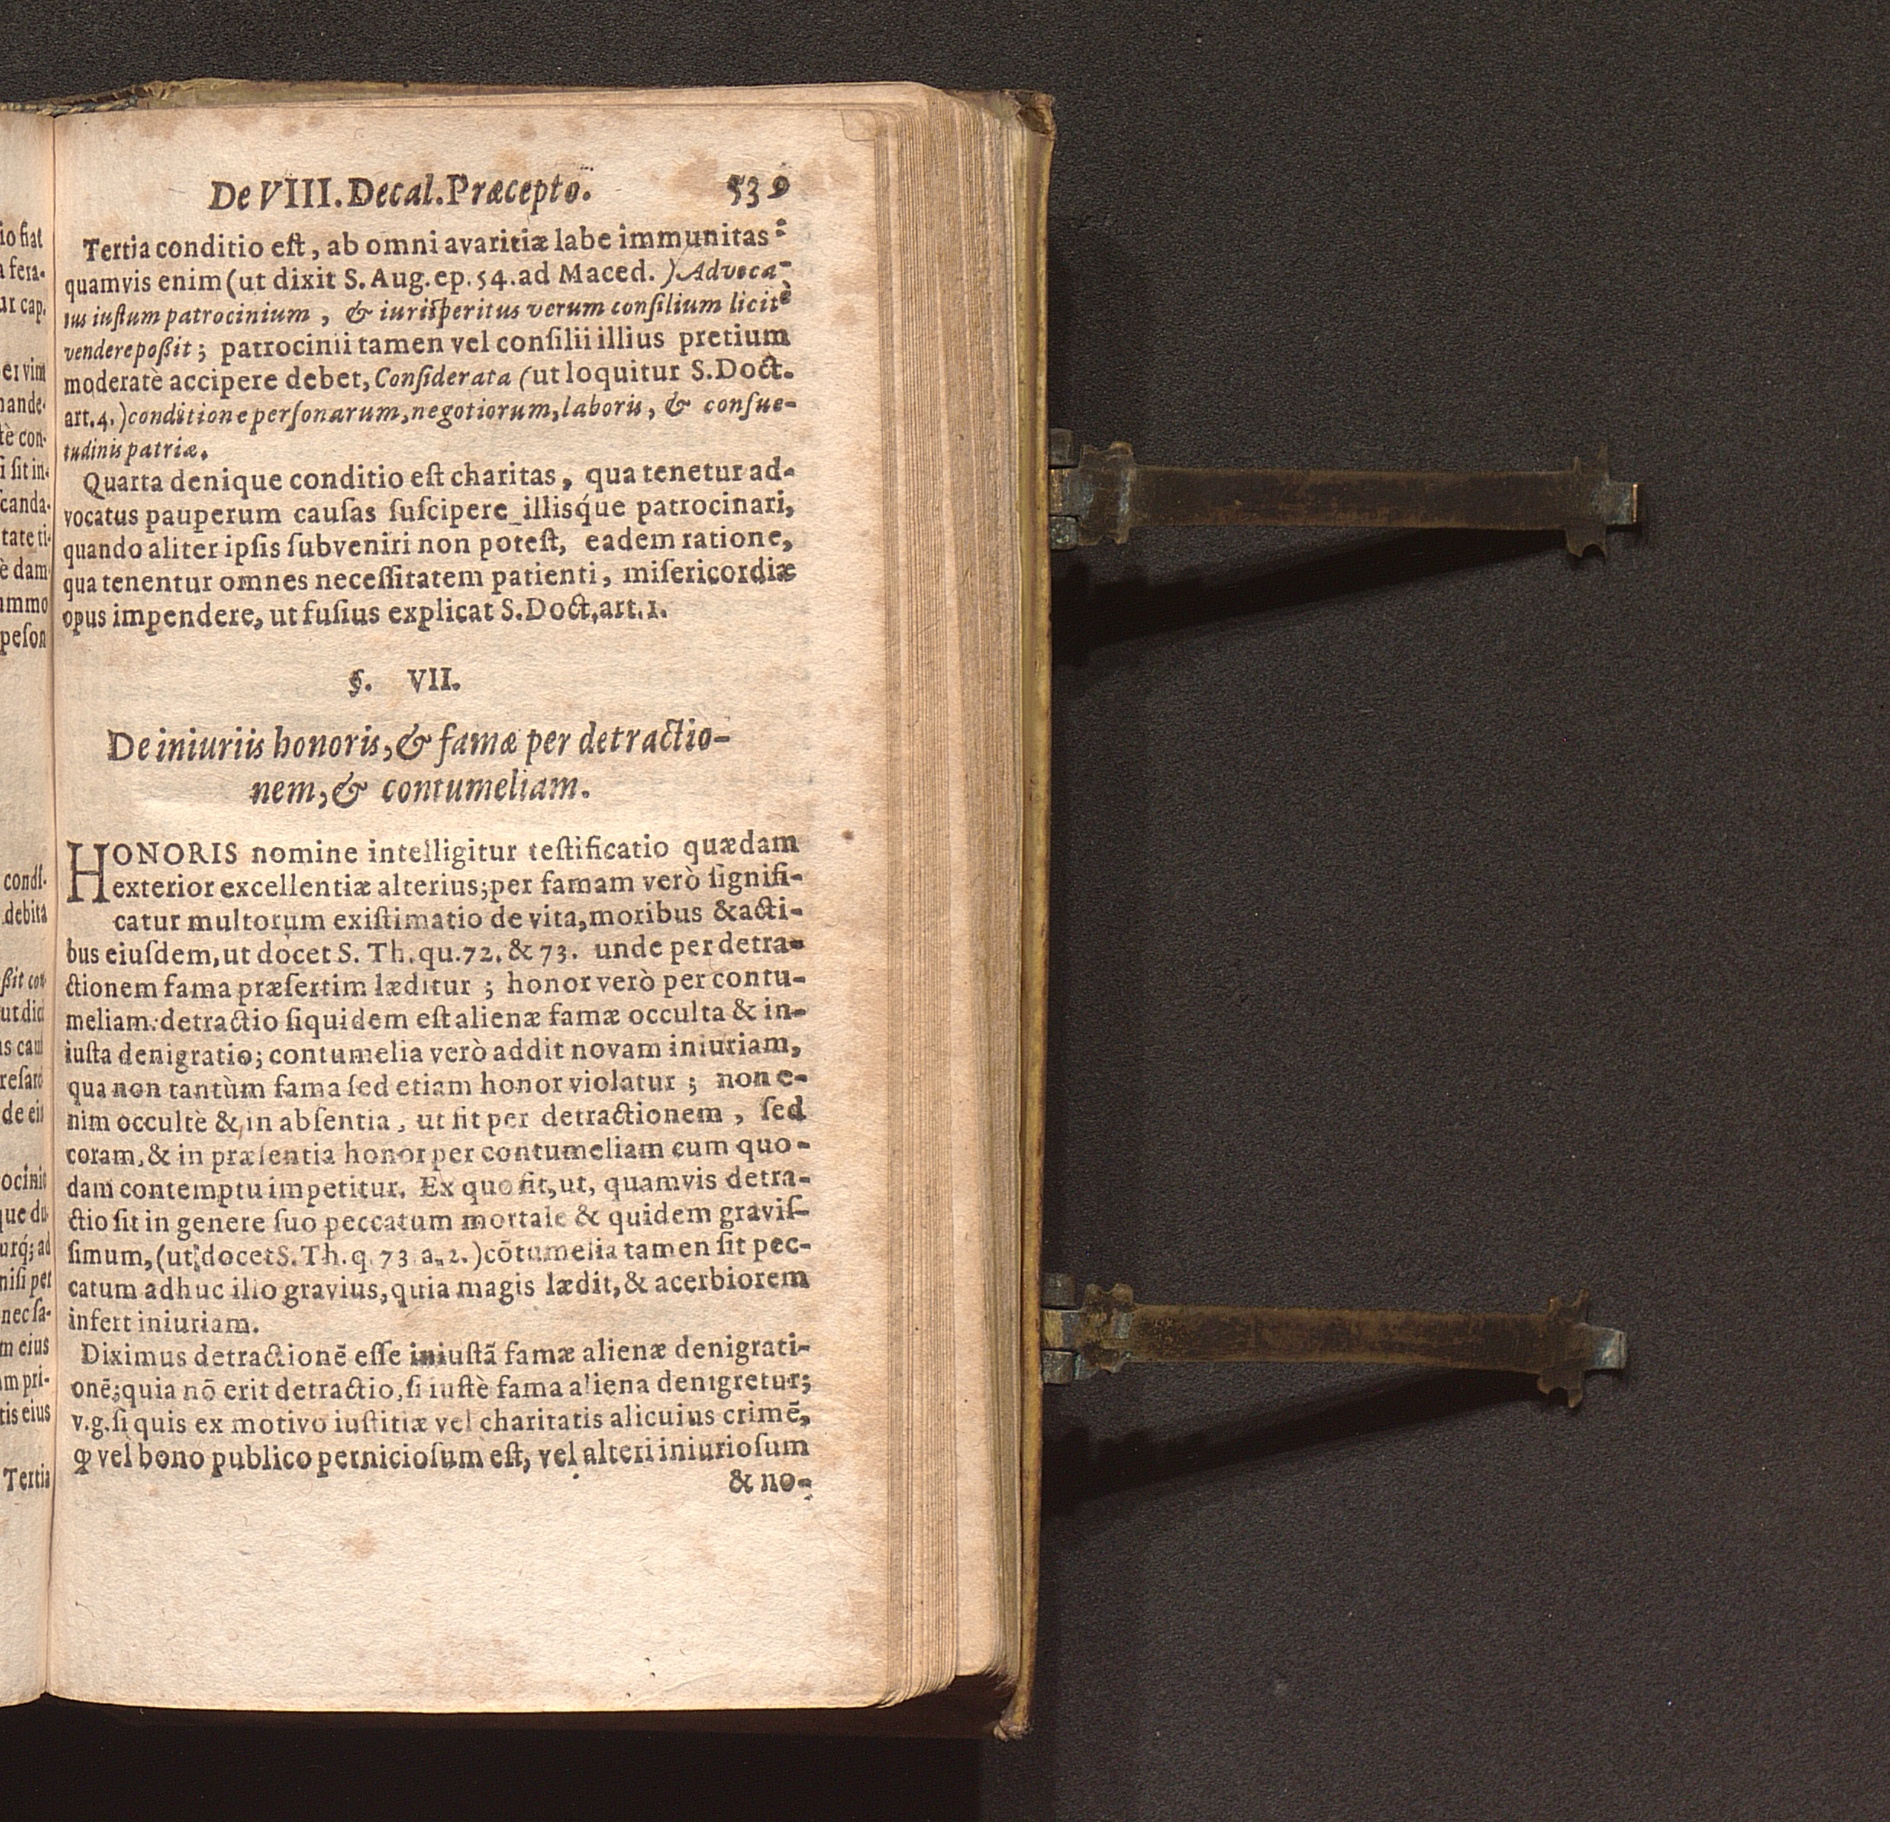 De VIII. Decal. Præcepto. 539
Tertia conditio eſt, ab omni avaritiæ labe immunitas:
quamvis enim (ut dixit S. Aug. ep. 54. ad Maced. ) Advoca-
tus iuſtum patrocinium, & iuriſperitus verum conſilium licitè
vendere poßit; patrocinii tamen vel conſilii illius pretium
moderatè accipere debet, Conſiderata (ut loquitur S. Doct.
art. 4. ) conditione perſonarum, negotiorum, laboris, & conſue-
tudinis patriæ.
Quarta denique conditio eſt charitas, qua tenetur ad-
vocatus pauperum cauſas ſuſcipere illisq́ue patrocinari,
quando aliter ipſis ſubveniri non poteſt, eadem ratione,
qua tenentur omnes neceſſitatem patienti, miſericordiæ
opus impendere, ut fuſius explicat S. Doct. art. 1.
§. VII.
De iniuriis honoris, & famæ per detractio-
nem, & contumeliam.
HONORIS nomine intelligitur teſtificatio quædam
exterior excellentiæ alterius; per famam verò ſignifi-
catur multorum exiſtimatio de vita, moribus & acti-
bus eiuſdem, ut docet S. Th. qu. 72. & 73. unde per detra-
ctionem fama præſertim læditur; honor verò per contu-
meliam: detractio ſiquidem eſt alienæ famæ occulta & in-
iuſta denigratio; contumelia verò addit novam iniuriam,
qua non tantùm fama ſed etiam honor violatur; non e-
nim occultè & in abſentia, ut fit per detractionem, ſed
coram, & in præſentia honor per contumeliam cum quo-
dam contemptu impetitur. Ex quo fit, ut, quamvis detra-
ctio ſit in genere ſuo peccatum mortale & quidem graviſ-
ſimum, (ut docet S. Th. q. 73 a. 2. ) cõtumelia tamen ſit pec-
catum adhuc illo gravius, quia magis lædit, & acerbiorem
infert iniuriam.
Diximus detractionē eſſe iniuſtã famæ alienæ denigrati-
onē; quia nõ erit detractio, ſi iuſtè fama aliena denigretur;
v. g. ſi quis ex motivo iuſtitiæ vel charitatis alicuius crimē,
ꝙ vel bono publico pernicioſum eſt, vel alteri iniurioſum
& no-